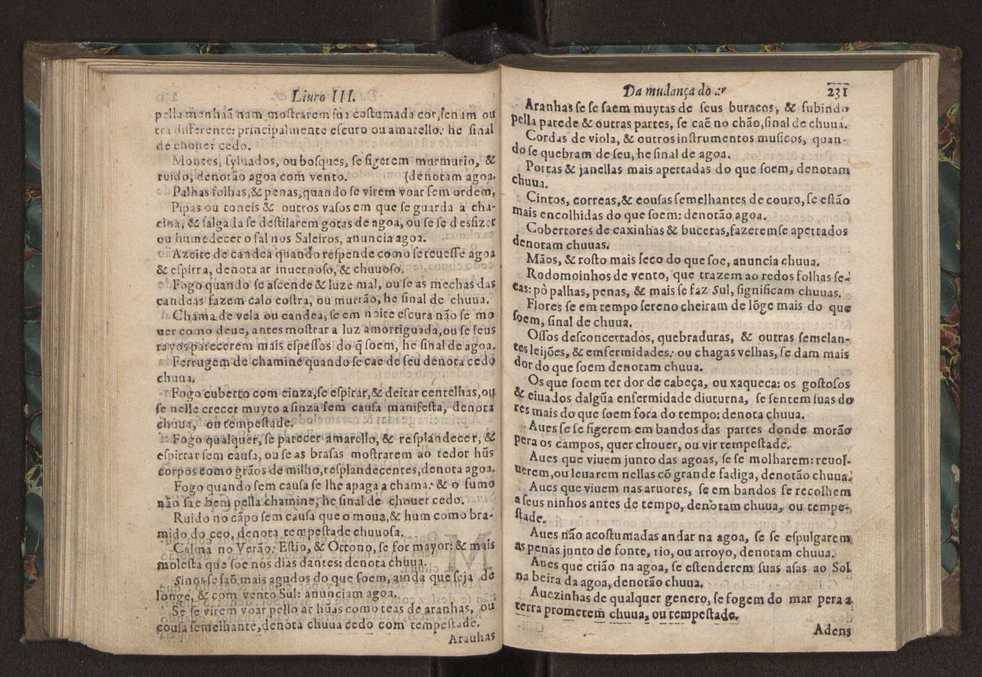 Liuro III.
pella manhiã nam mostrarem sua costumada cor, senam ou
tra differente: principalmente escuro ou amarello: he sinal
de chouer cedo.
Montes, syluados, ou bosques, se fizerem murmurio, &
ruido, denotão agoa com vento. (denotam agoa.
Palhas folhas, & penas, quando se virem voar sem ordem,
Pipas ou toneis & outros vasos em que se guarda a cha-
cina, & salgada se destilarem gotas de agoa, ou se se desfizer
ou humedecer o sal nos Saleiros, anuncia agoa.
Azeite de candea quando respende como se teuesse agoa
& espirra, denota ar inuernoso, & chuuoso.
Fogo quando se ascende & luze mal, ou se as mechas das
candeas fazem calo costra, ou murrão, he sinal de chuua.
Chama de vela ou candea, se em noite escura não se mo
uer como deue, antes mostrar a luz amortiguada, ou se seus
rayos parecerem mais espessos do q̃ soem, he sinal de agoa.
Ferrugem de chamine quando se cae de seu denota cedo
chuua.
Fogo cuberto com cinza, se espirar, & deitar centelhas, ou
se nelle crecer muyto a sinza sem causa manifesta, denota
chuua, ou tempestade.
Fogo qualquer, se parecer amarello, & resplandecer, &
espirrar sem causa, ou se as brasas mostrarem ao redor hũs
corpos como grãos de milho, resplandecentes, denota agoa.
Fogo quando sem causa se lhe apaga a chama: & o fumo
não sae bem pella chamine, he sinal de chouer cedo.
Ruido no cãpo sem causa que o moua, & hum como bra-
mido do ceo, denota tempestade chuuosa.
Calma no Verão, Estio, & Ottono, se for mayor: & mais
molesta que soe nos dias dantes: denota chuua.
Sinos se saõ mais agudos do que soem, ainda que seja de
longe, & com vento Sul: anunciam agoa.
Se se virem voar pello ar hũas como teas de aranhas, ou
cousa semelhante, denota chuua cedo com tempestade.
Arauhas
Da mudança do ar 231
Aranhas se se saem muytas de seus buracos, & subindo
pella parede & outras partes, se caẽ no chão, sinal de chuua.
Cordas de viola, & outros instrumentos musicos, quan-
do se quebram de seu, he sinal de agoa.
Portas & janellas mais apertadas do que soem, denotam
chuua.
Cintos, correas, & cousas semelhantes de couro, se estão
mais encolhidas do que soem: denotão agoa.
Cobertores de caxinhas & bucetas, fazeremse apertados
denotam chuuas.
Mãos, & rosto mais seco do que soe, anuncia chuua.
Rodomoinhos de vento, que trazem ao redos folhas se-
cas: pò palhas, penas, & mais se faz Sul, significam chuuas.
Flores se em tempo sereno cheiram de lõge mais do que
soem, sinal de chuua.
Ossos desconcertados, quebraduras, & outras semelan-
tes leijões, & emsermidades: ou chagas velhas, se dam mais
dor do que soem denotam chuua.
Os que soem ter dor de cabeça, ou xaqueca: os gostosos
& eiuados dalgũa enfermidade diuturna, se sentem suas do
res mais do que soem fora do tempo: denota chuua.
Aues se se figerem em bandos das partes donde morão
pera os campos, quer chouer, ou vir tempestade.
Aues que viuem junto das agoas, se se molharem: reuol-
uerem, ou leuarem nellas cõ grande fadiga, denotão chuua.
Aues que viuem nas aruores, se em bandos se recolhem
a seus ninhos antes de tempo, denotam chuua, ou tempe-
stade.
Aues não acostumadas andar na agoa, se se espulgarem
as penas junto de fonte, rio, ou arroyo, denotam chuua.
Aues que crião na agoa, se estenderem suas asas ao Sol
na beira da agoa, denotão chuua.
Auezinhas de qualquer genero, se fogem do mar pera a
terra prometem chuua, ou tempestade.
Adens